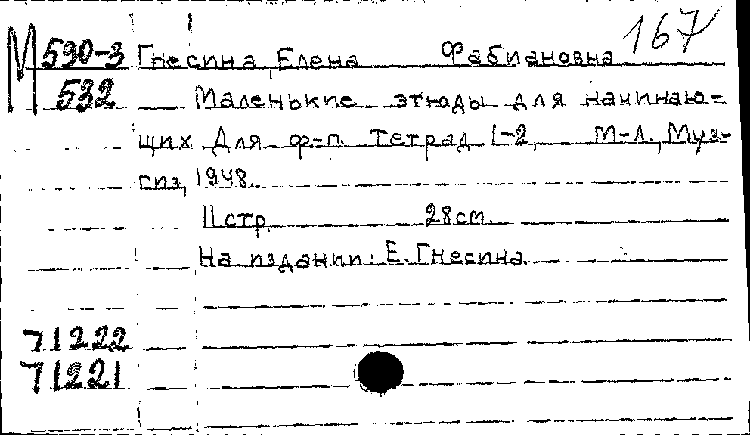 167
М 590-3 Гнесина, Елена Фабиановна
532 Маленькие этюды для начинаю-
щих Для ф-п. Тетрад 1-2, М-Л., Муз-
гиз, 1948.
11 стр. 28 см.
На издании: Е. Гнесина
71222
71221